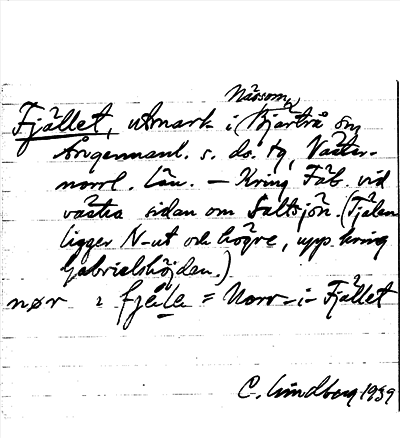 Nässom,
Fjället, utmark i Bjärtrå sn
Ångermanl. s. ds. tg, Väster-
norrl. län. — Kring Fäb. vid
västra sidan om Saltsjön. (Fjälen
ligger N-ut och högre, upp kring
Gabrielshöjden.)
nør i fjele = Norr-i-Fjället
C. Lindberg 1939